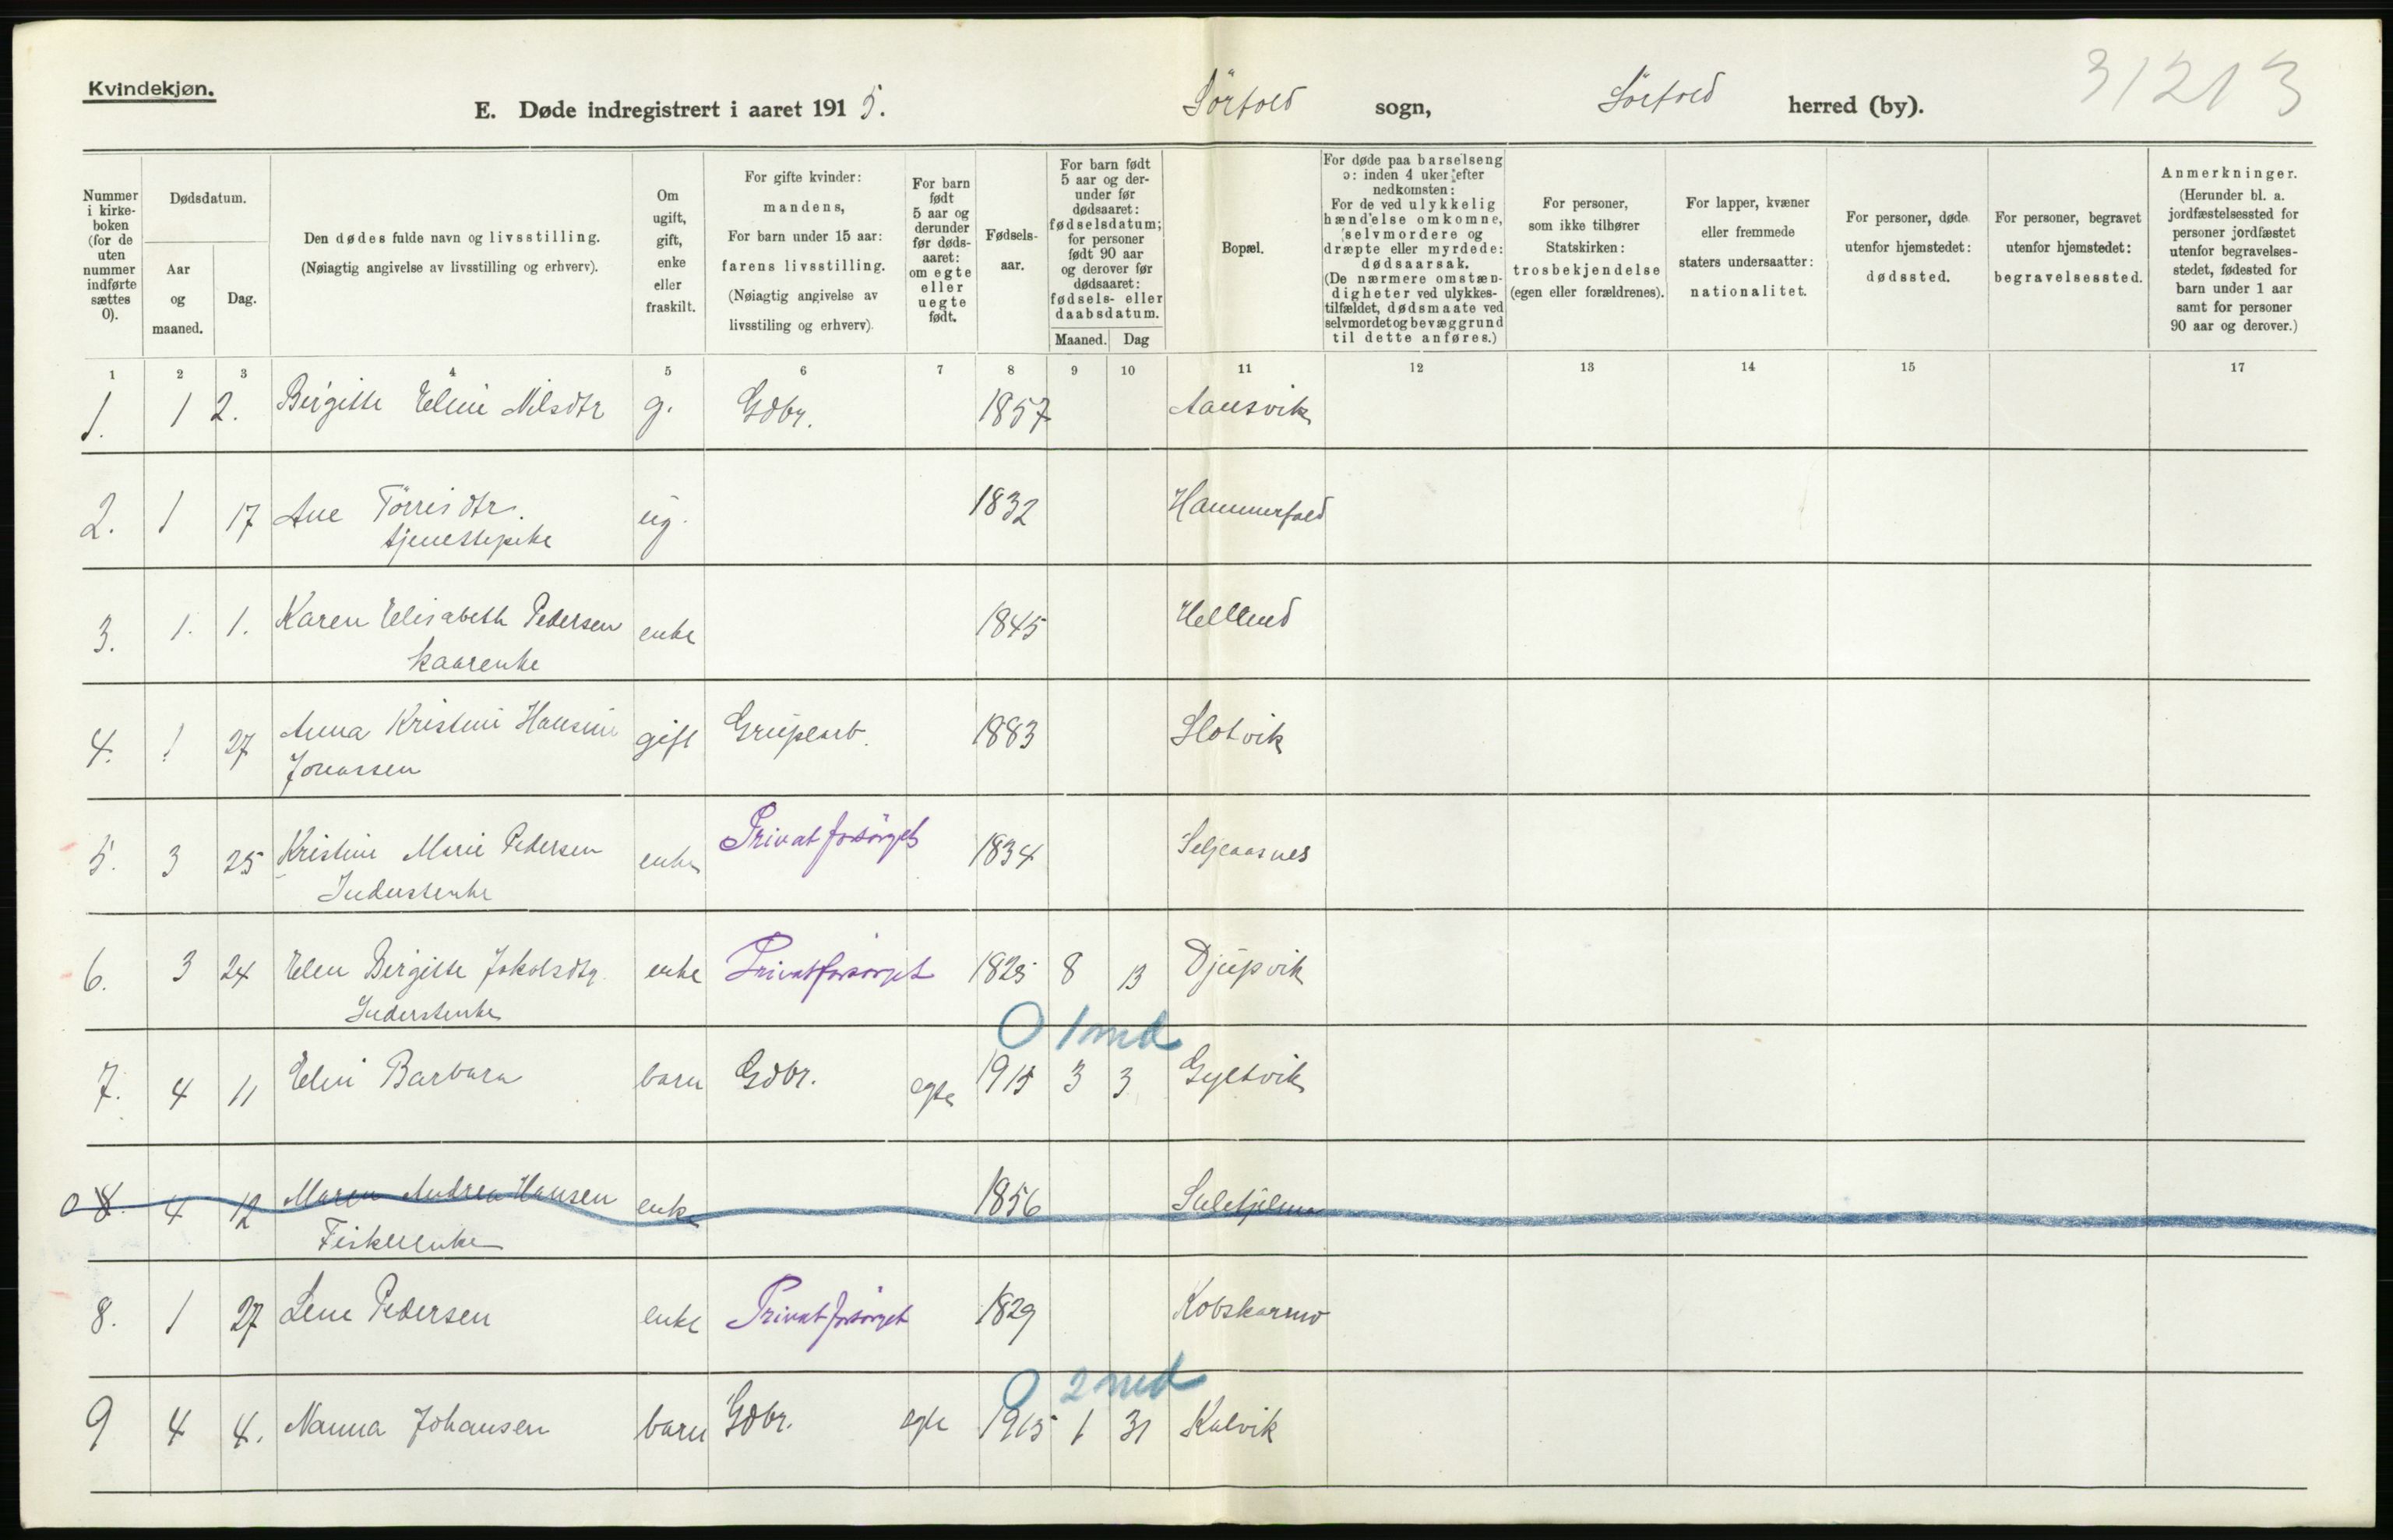 Kvindekjøn.
E. Døde indregistrert i aaret 1915. Sørfold sogn, Sørfold herred (by). 31213
Nummer i kirkeboken (for de uten nummer indførte sættes 0).
Dødsdatum.
Aar og maaned.
Dag.
Den dødes fulde navn og livsstilling.
(Nøiagtig angivelse av livsstilling og erhverv).
Om ugift, gift, enke eller fraskilt.
For gifte kvinder: mandens,
For barn under 15 aar: farens livsstilling.
(Nøiagtig angivelse av livsstiling og erhverv)
For barn født 5 aar og derunder før dødsaaret: om egte eller uegte født.
Fødselsaar.
For barn født 5 aar og derunder før dødsaaret: fødselsdatum; for personer født 90 aar og derover før dødsaaret: fødsels- eller daabsdatum.
Maaned. Dag
Bopæl.
For døde paa barselseng ɔ: inden 4 uker efter nedkomsten:
For de ved ulykkelig hændelse omkomne, selvmordere og dræpte eller myrdede: dødsaarsak.
(De nærmere omstændigheter ved ulykkestilfældet, dødsmaate ved selvmordet og bevæggrund til dette anføres.)
For personer, som ikke tilhører Statskirken: trosbekjendelse (egen eller forældrenes).
For lapper, kvæner eller fremmede staters undersaatter: nationalitet.
For personer, døde utenfor hjemstedet: dødssted.
For personer, begravet utenfor hjemstedet: begravelsessted.
Anmerkninger.
(Herunder bl. a. jordfæstelsessted for personer jordfæstet utenfor begravelsesstedet, fødested for barn under 1 aar samt for personer 90 aar og derover.)
1 2 3 4 5 6 7 8 9 10 11 12 13 14 15 17
1. 1 2. Birgitte Eline Nilsdtr g. Gdbr. 1857 Aansvik
2. 1 17 Ane Tørrisdtr. ug. 1832 Hammerfald
tjenestepike
3. 1. 1. Karen Elisabeth Pedersen enke 1845 Helland
kaarenke
4. 1 27 Anna Kristine Hansine gift Grupearb. 1883 Slotvik
Jonassen
5. 3 25 Kristine Marie Pedersen enke Privat forsørget 1834 Seljeaasnes
Inderstenke
6. 3 24 Elen Birgitte Jakobsdtr. enke Privatforsørget 1825 8 13 Djupvik
Inderstenke
0 1 md
7. 4 11 Elini Barbara barn Gdbr. egte 1915 3 3 Gyltvik
0 8. 4 12 Maren Andrea Hansen enke 1856 Sulitjelma
Fiskerenke
8. 1 27 Lene Pedersen enke Privat forsørget 1829 Kobskarmo
0 2 md
9 4 4. Nanna Johansen barn Gdbr. egte 1915 1 31 Kalvik